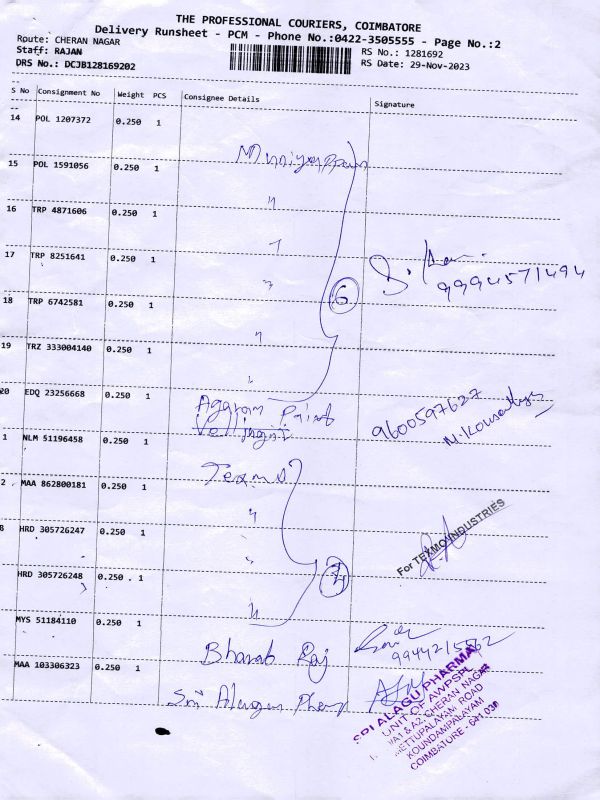 THE PROFESSIONAL COURIERS, COIMBATORE
Delivery Runsheet - PCM - Phone No.:0422-3505555 - Page No.:2
Route: CHERAN NAGAR
RS No.: 1281692
Staff: RAJAN
RS Date: 29-Nov-2023
DRS No.: DCJB128169202
S No Consignment No Weight PCS Consignee Details Signature
14 POL 1207372 0.250 1
Muniyappan
15 POL 1591056 0.250 1
"
16 TRP 4871606 0.250 1
"
17 TRP 8251641 0.250 1
"
9994571494
6
18 TRP 6742581 0.250 1
"
19 TRZ 333004140 0.250 1
"
20 EDQ 23256668 0.250 1
Agaram Paint
9600597627
1 NLM 51196458 0.250 1
Texmo
2 MAA 862800181 0.250 1
"
For TEXMO INDUSTRIES
8 HRD 305726247 0.250 1
"
HRD 305726248 0.250 . 1
"
MYS 51184110 0.250 1
Bharath Raj
MAA 103306323 0.250 1
Sri Alagu
SRI ALAGU PHARMA
UNIT OF AWPSPL
CHERAN NAGAR
METTUPALAYAM ROAD
KOUNDAMPALAYAM
COIMBATORE - 641 030